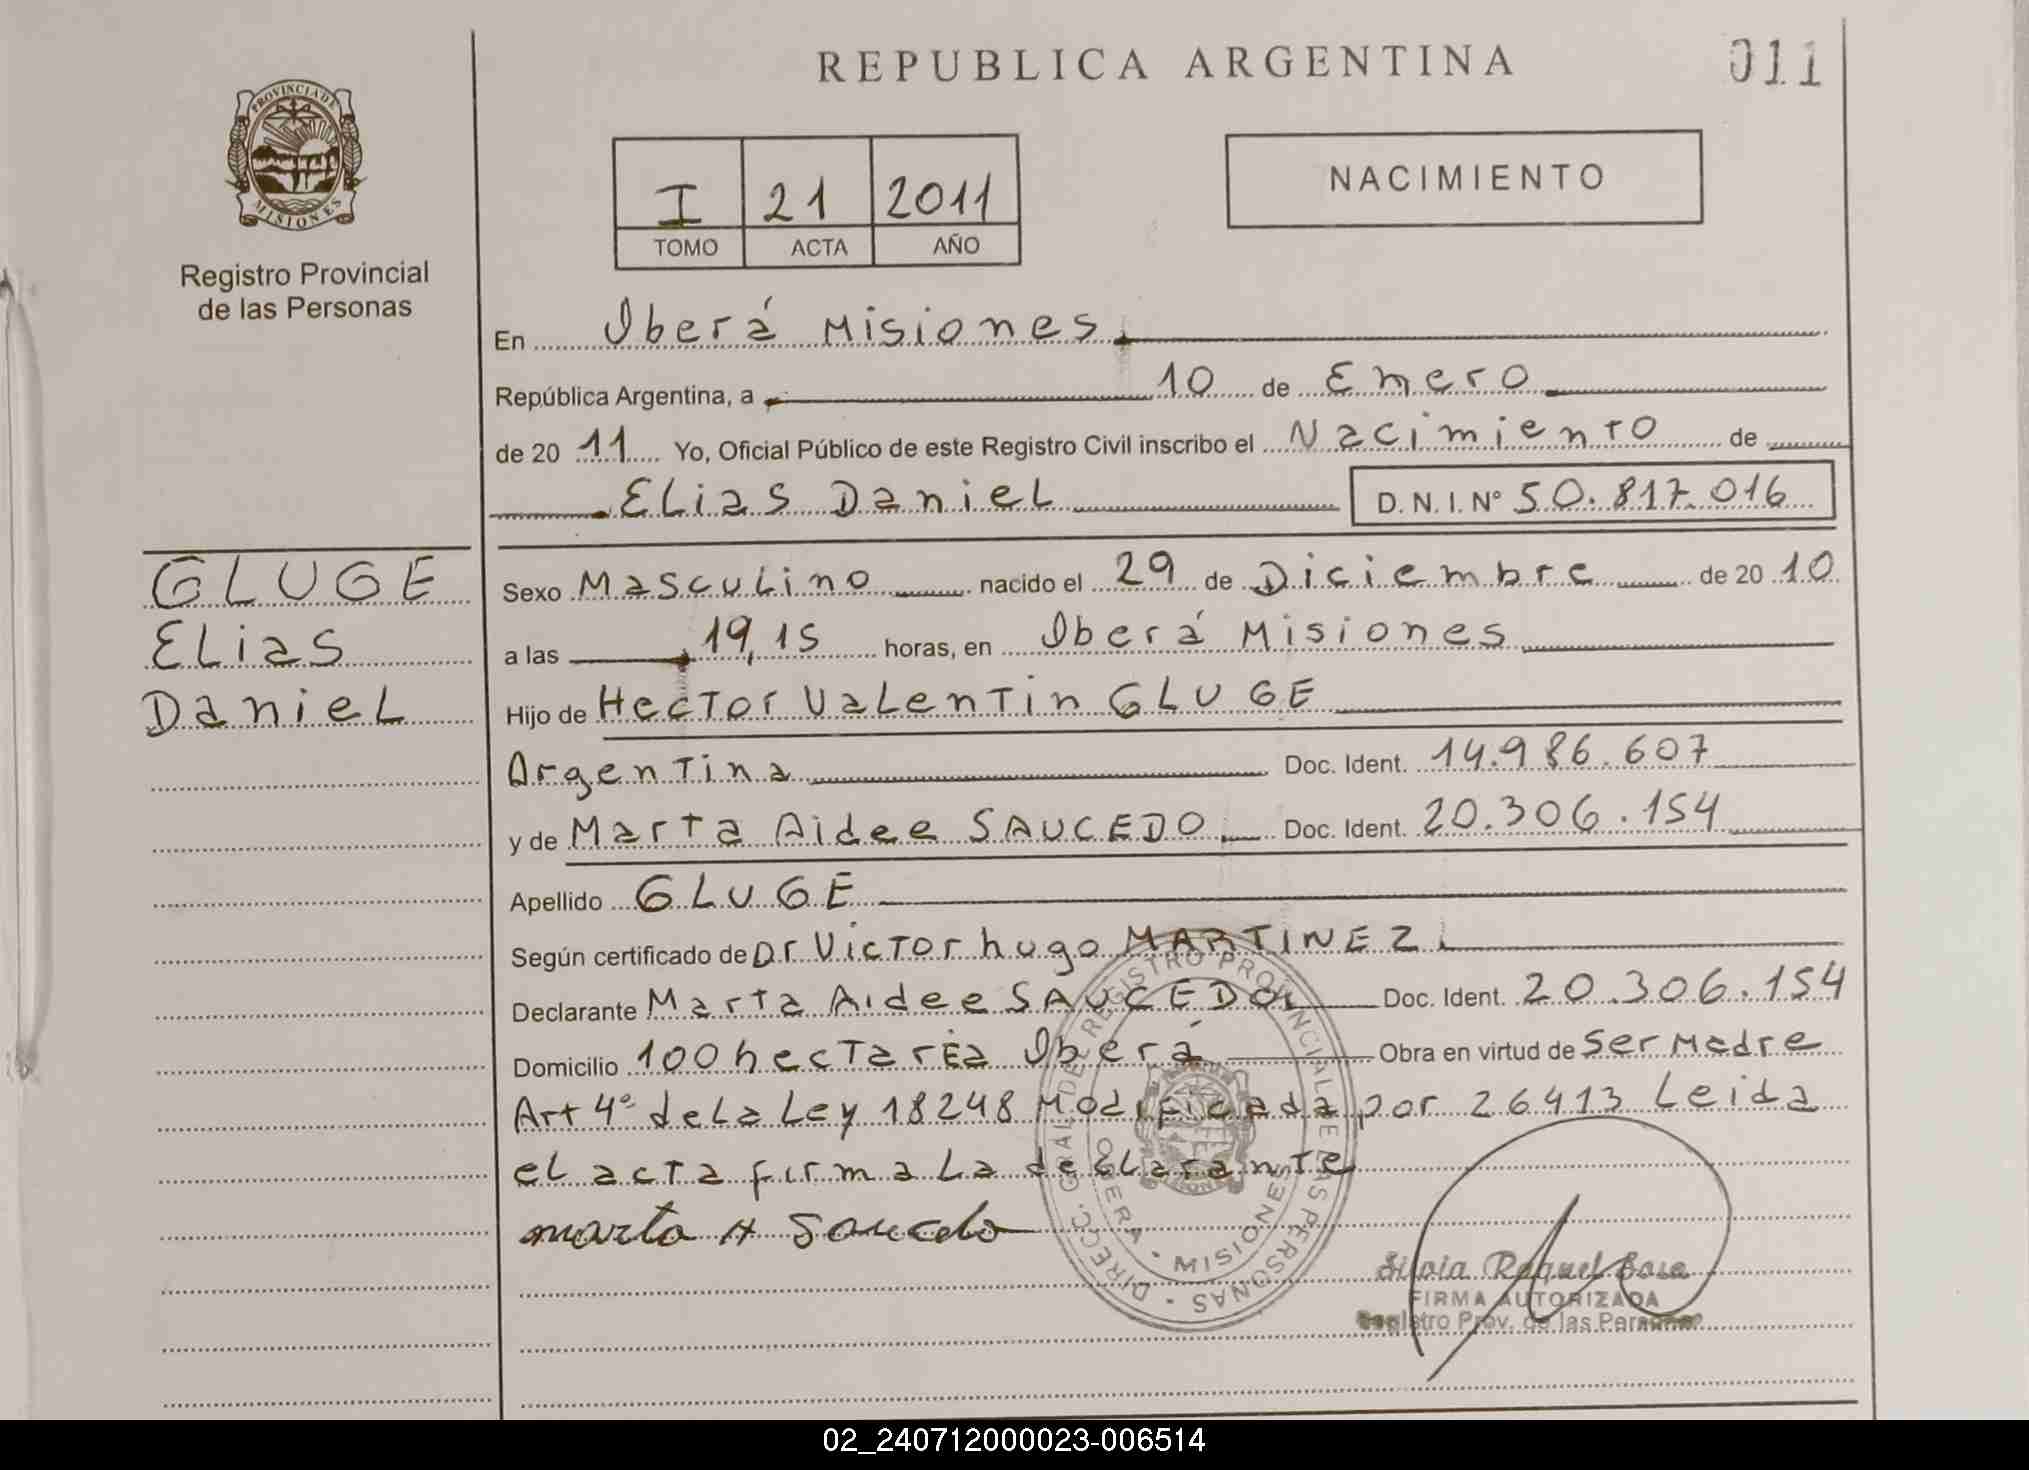 REPUBLICA ARGENTINA
011
PROVINCIA DE
MISIONES
Registro Provincial
de las Personas
I 21 2011
TOMO ACTA AÑO
NACIMIENTO
En Oberá Misiones
República Argentina, a 10 de Enero
de 20 11 Yo, Oficial Público de este Registro Civil inscribo el Nacimiento de
Elias Daniel D.N.I.Nº 50.817.016
GLUGE
Elias
Daniel
Sexo Masculino nacido el 29 de Diciembre de 20 10
a las 19,15 horas, en Oberá Misiones
Hijo de Hector Valentin GLUGE
Argentina Doc. Ident. 14.986.607
y de Marta Aidee SAUCEDO Doc. Ident. 20.306.154
Apellido GLUGE
Según certificado de Dr Victor hugo MARTINEZ
Declarante Marta Aidee SAUCEDO Doc. Ident. 20.306.154
Domicilio 100 hectarea Oberá Obra en virtud de Ser Madre
Art 4º de la Ley 18248 Modificada por 26413 Leida
el acta firma la declarante
marta A Saucedo
DIRECC. GRAL DEL REGISTRO PROVINCIAL DE LAS PERSONAS
OBERA - MISIONES
Silvia Raquel Sosa
FIRMA AUTORIZADA
Registro Prov. de las Personas
02_240712000023-006514